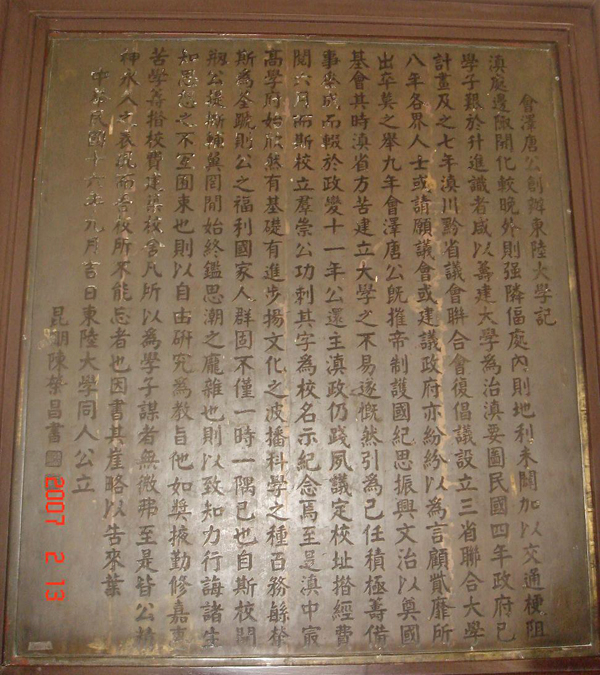 會澤唐公創辦東陸大學記
滇庭邊陬開化較晚外則强隣偪處內則地利未闢加以交通梗阻
學子艱於升進識者咸以籌建大學為治滇要圖民國四年政府已
計畫及之七年滇川黔省議會聯合會復倡議設立三省聯合大學
八年各界人士或請願議會或建議政府亦紛紛以為言顧貲靡所
出卒莫之舉九年會澤唐公旣摧帝制護國紀思振興文治以奠國
基會其時滇省方苦建立大學之不易遂慨然引為己任積極籌備
事垂成而輟於政變十一年公還主滇政仍踐夙議定校址措經費
閱六月而斯校立羣崇公功刺其字為校名示紀念焉至是滇中最
高學府始歸然有基礎有進步揚文化之波播科學之種百務繇榇
斯為全號則公之福利國家人群固不僅一時一隅已也自斯校開
辦公提撕輔冀罔間始終鑑思潮之龐雜也則以致知力行誨諸生
知墨之不至囿束也則以自由研究為教旨他如獎掖勤修嘉惠
苦學籌措校費建築校舍凡所以為學子謀者無微弗至是皆公精
神永人之表感而吾校所不能忘者也因書其崖略以告來葉
中華民國十六年九月吉日東陸大學同人公立
昆明陳榮昌書
2007 2 13